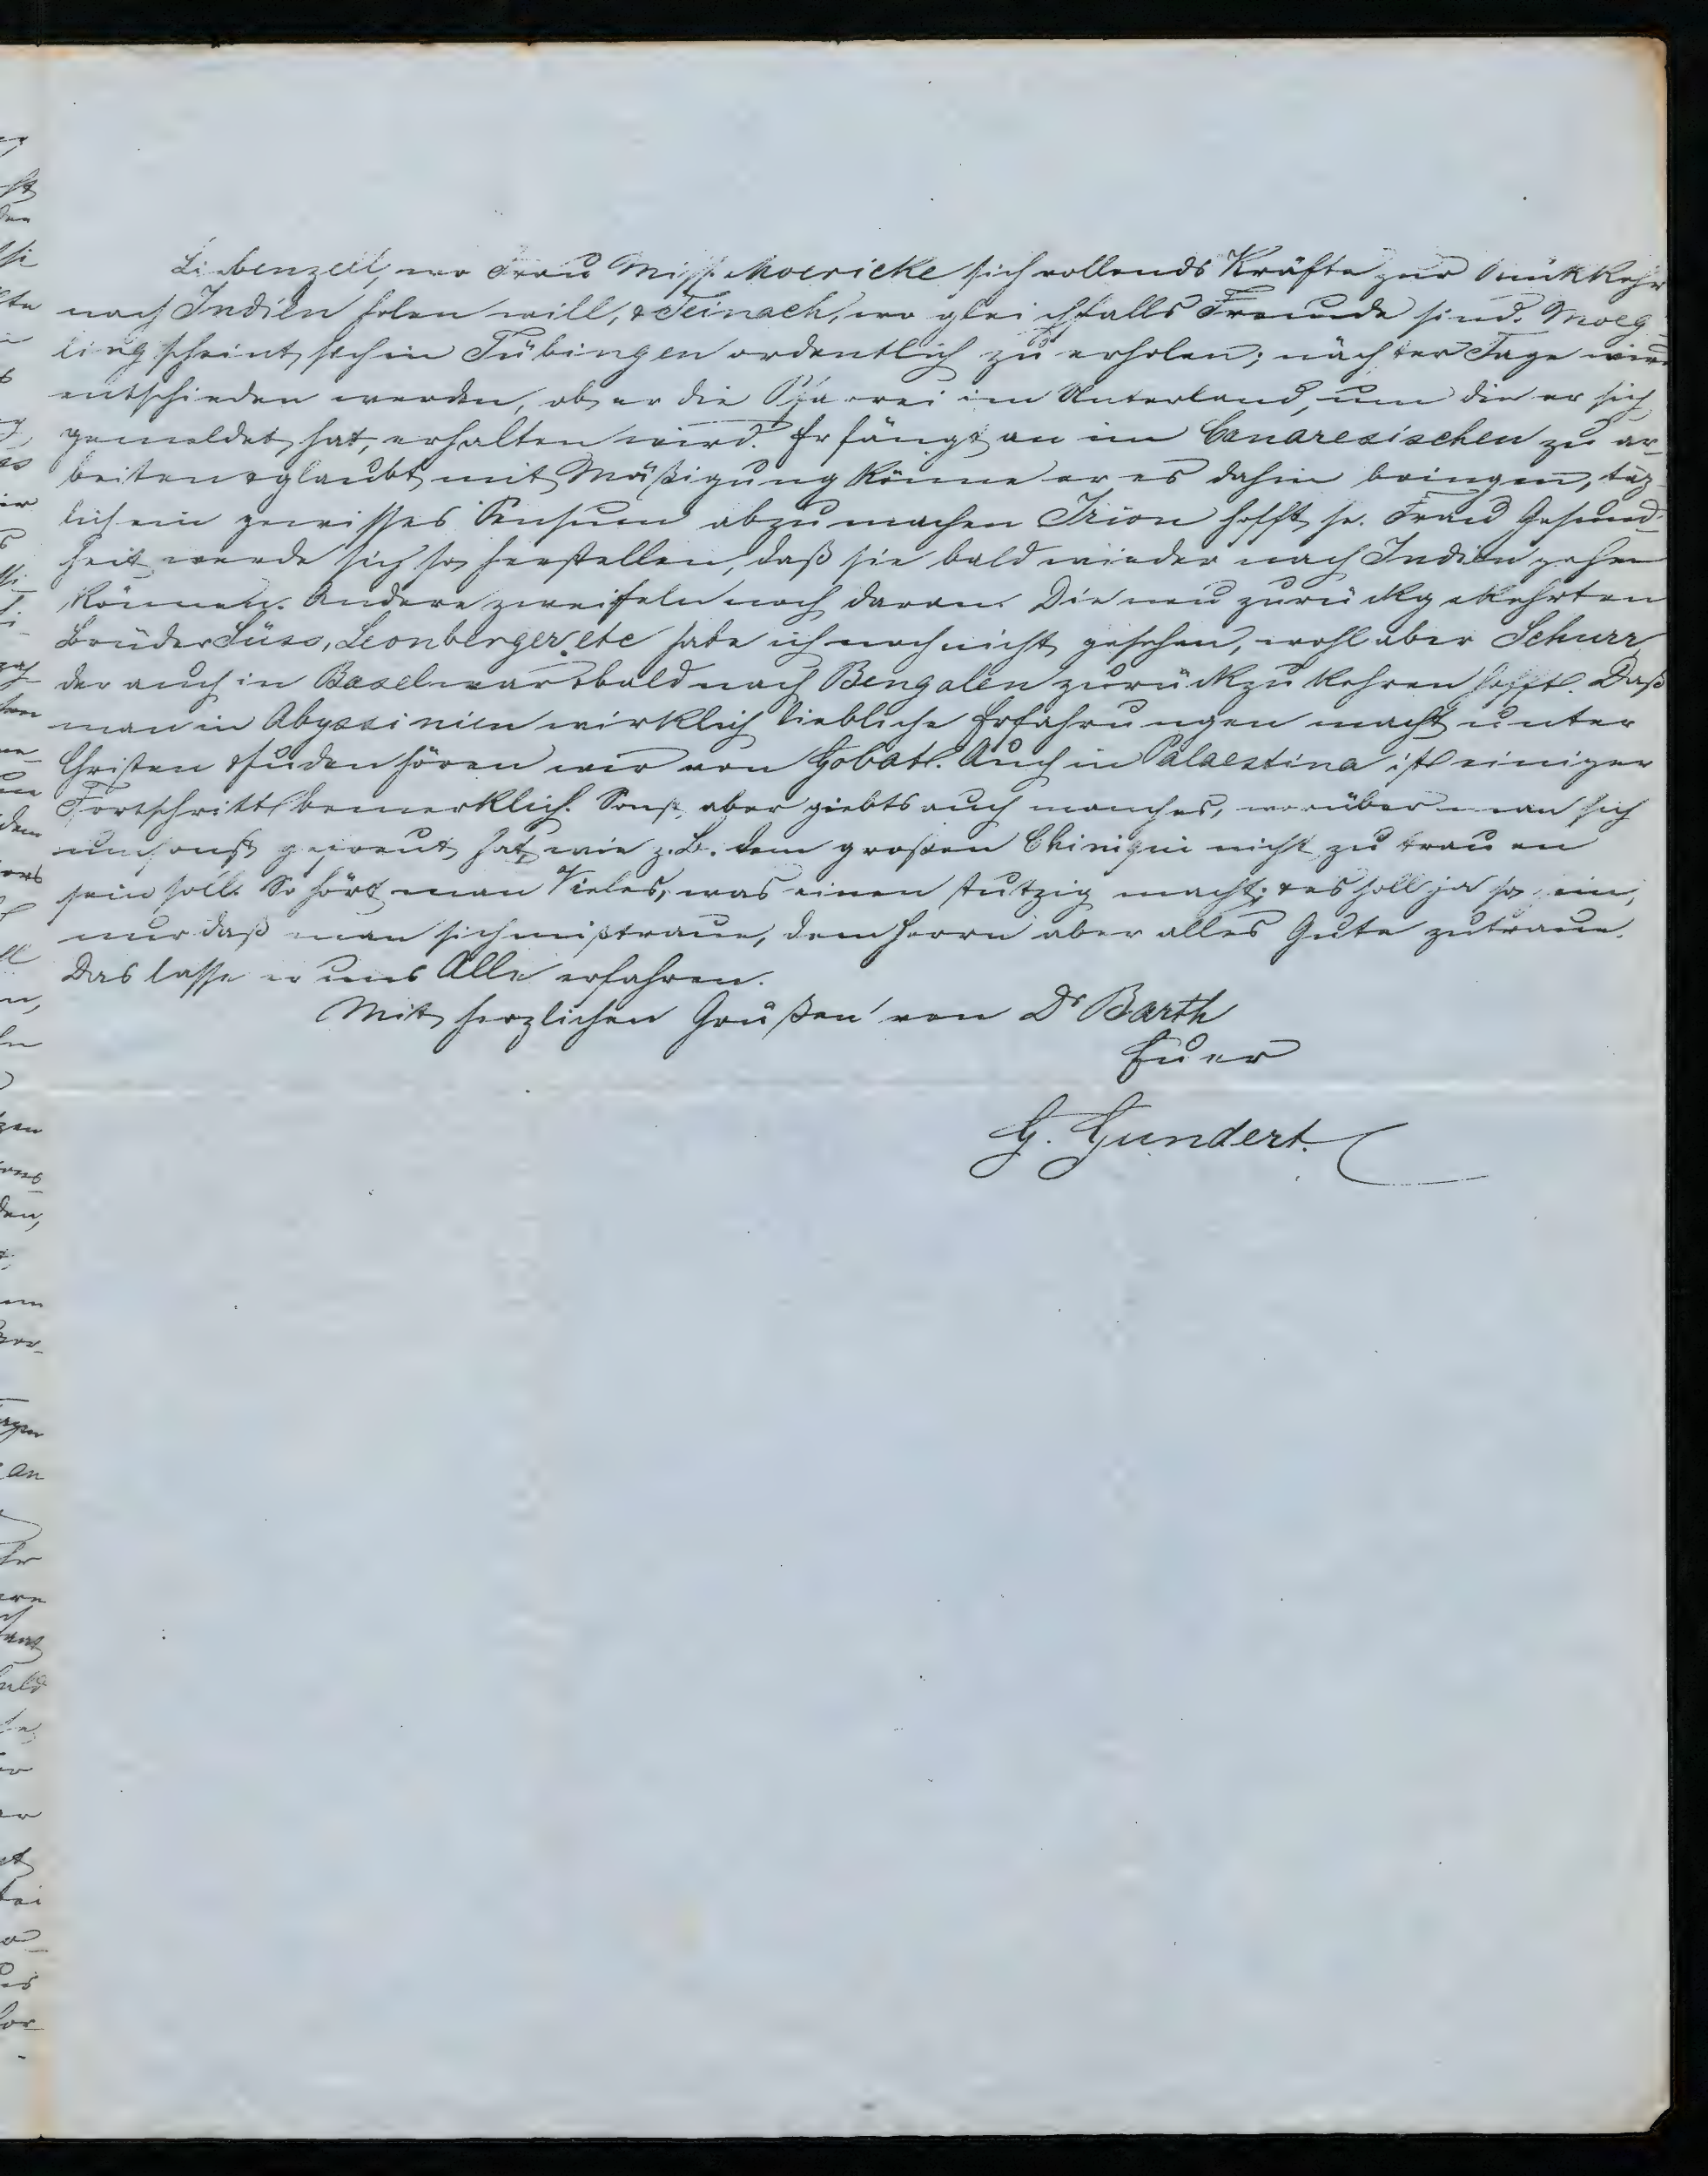 Liebenzell, wo Frau Miss. Moericke sich vollends Kräfte zur Rückkehr
nach Indien holen will, & Teinach, wo gleichfalls Freunde sind. Moeg-
ling scheint sich in Tübingen ordentlich zu erholen; nächster Tage wird
entschieden werden, ob er die Pfarrei im Unterland, um die er sich
gemeldet hat, erhalten wird. Er fängt an im Canaresischen zu ar-
beiten & glaubt mit Mäßigung könne er es dahin bringen, täg-
lich ein gewisses Pensum abzumachen Irion hofft sr. Frau Gesund-
heit werde sich so herstellen, daß sie bald wieder nach Indien gehen
können. Andere zweifeln noch daran. Die neu zurückgekehrten
Brüder Süss, Leonberger etc habe ich noch nicht gesehen, wohl aber Schurr,
der auch in Basel war & bald nach Bengalen zurückzukehren hofft. Daß
man in Abyssinien wirklich liebliche Erfahrungen macht unter
Christen & Juden hören wir von Gobat. Auch in Palaestina ist einiger
Fortschritt bemerklich. Sonst aber giebts auch manches, worüber man sich
umsonst gefreut hat, wie z.B. dem großen Chiniqui nicht zu trauen
sein soll. So hört man Vieles, was einen stutzig macht; & es soll ja so sein,
nur daß man sich mißtraue, dem Herrn aber alles Gute zutraue.
Das lasse er uns Alle erfahren.
Mit herzlichen Grüßen von Dr Barth
Euer
H. Gundert.